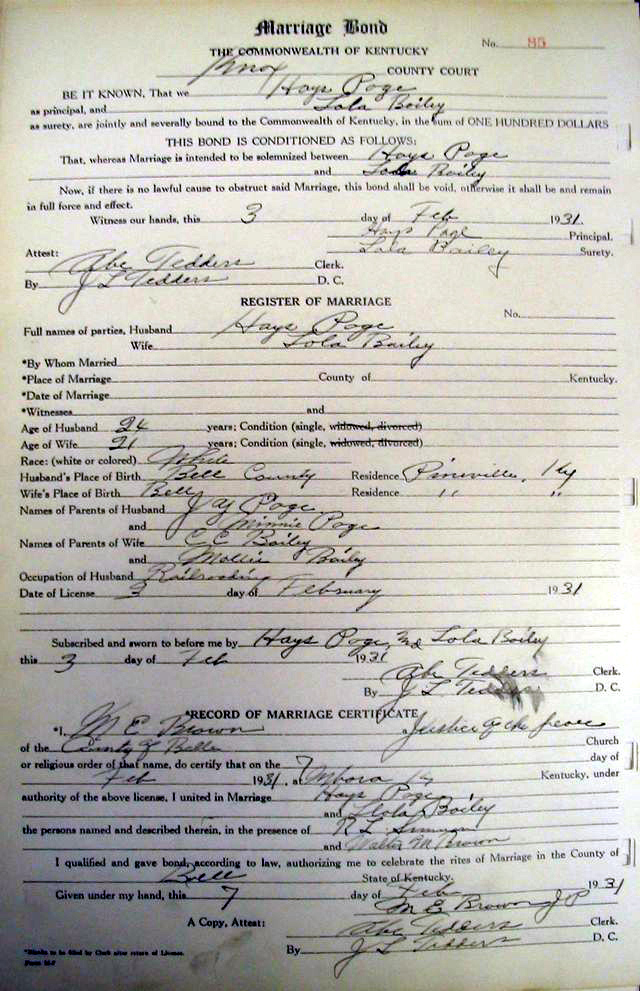 Marriage Bond
No. 85
THE COMMONWEALTH OF KENTUCKY
Knox COUNTY COURT
BE IT KNOWN, That we Hays Poge
as principal, and Lola Bailey
as surety, are jointly and severally bound to the Commonwealth of Kentucky, in the sum of ONE HUNDRED DOLLARS
THIS BOND IS CONDITIONED AS FOLLOWS:
That, whereas Marriage is intended to be solemnized between Hays Poge
and Lola Bailey
Now, if there is no lawful cause to obstruct said Marriage, this bond shall be void, otherwise it shall be and remain
in full force and effect.
Witness our hands, this 3 day of Feb 1931.
Hays Page Principal.
Lola Bailey Surety.
Attest:
Abe Tedders Clerk.
By J L Tedders D. C.
REGISTER OF MARRIAGE
No.
Full names of parties, Husband Hays Poge
Wife Lola Bailey
*By Whom Married
*Place of Marriage County of Kentucky.
*Date of Marriage
*Witnesses and
Age of Husband 24 years; Condition (single, widowed, divorced)
Age of Wife 21 years; Condition (single, widowed, divorced)
Race: (white or colored) White
Husband's Place of Birth Bell County Residence Pineville, Ky
Wife's Place of Birth Bell Residence " "
Names of Parents of Husband J Y Poge
and Minnie Poge
Names of Parents of Wife C C Bailey
and Mollie Baily
Occupation of Husband Railroading
Date of License 3 day of February 1931
Subscribed and sworn to before me by Hays Poge, and Lola Bailey
this 3 day of Feb 1931
Abe Tedders Clerk.
By J L Tedders D. C.
*RECORD OF MARRIAGE CERTIFICATE
*I, M E Brown a Justice of the peace
of the County of Bell Church
or religious order of that name, do certify that on the 7 day of
Feb 1931, at Ky Kentucky, under
authority of the above license, I united in Marriage Hays Poge
and Lola Bailey
the persons named and described therein, in the presence of R L
and Walter M Brown
I qualified and gave bond, according to law, authorizing me to celebrate the rites of Marriage in the County of
Bell State of Kentucky.
Given under my hand, this 7 day of Feb 1931
M E Brown J P
A Copy, Attest: Abe Tedders Clerk.
By J L Tedders D. C.
*Blanks to be filled by Clerk after return of License.